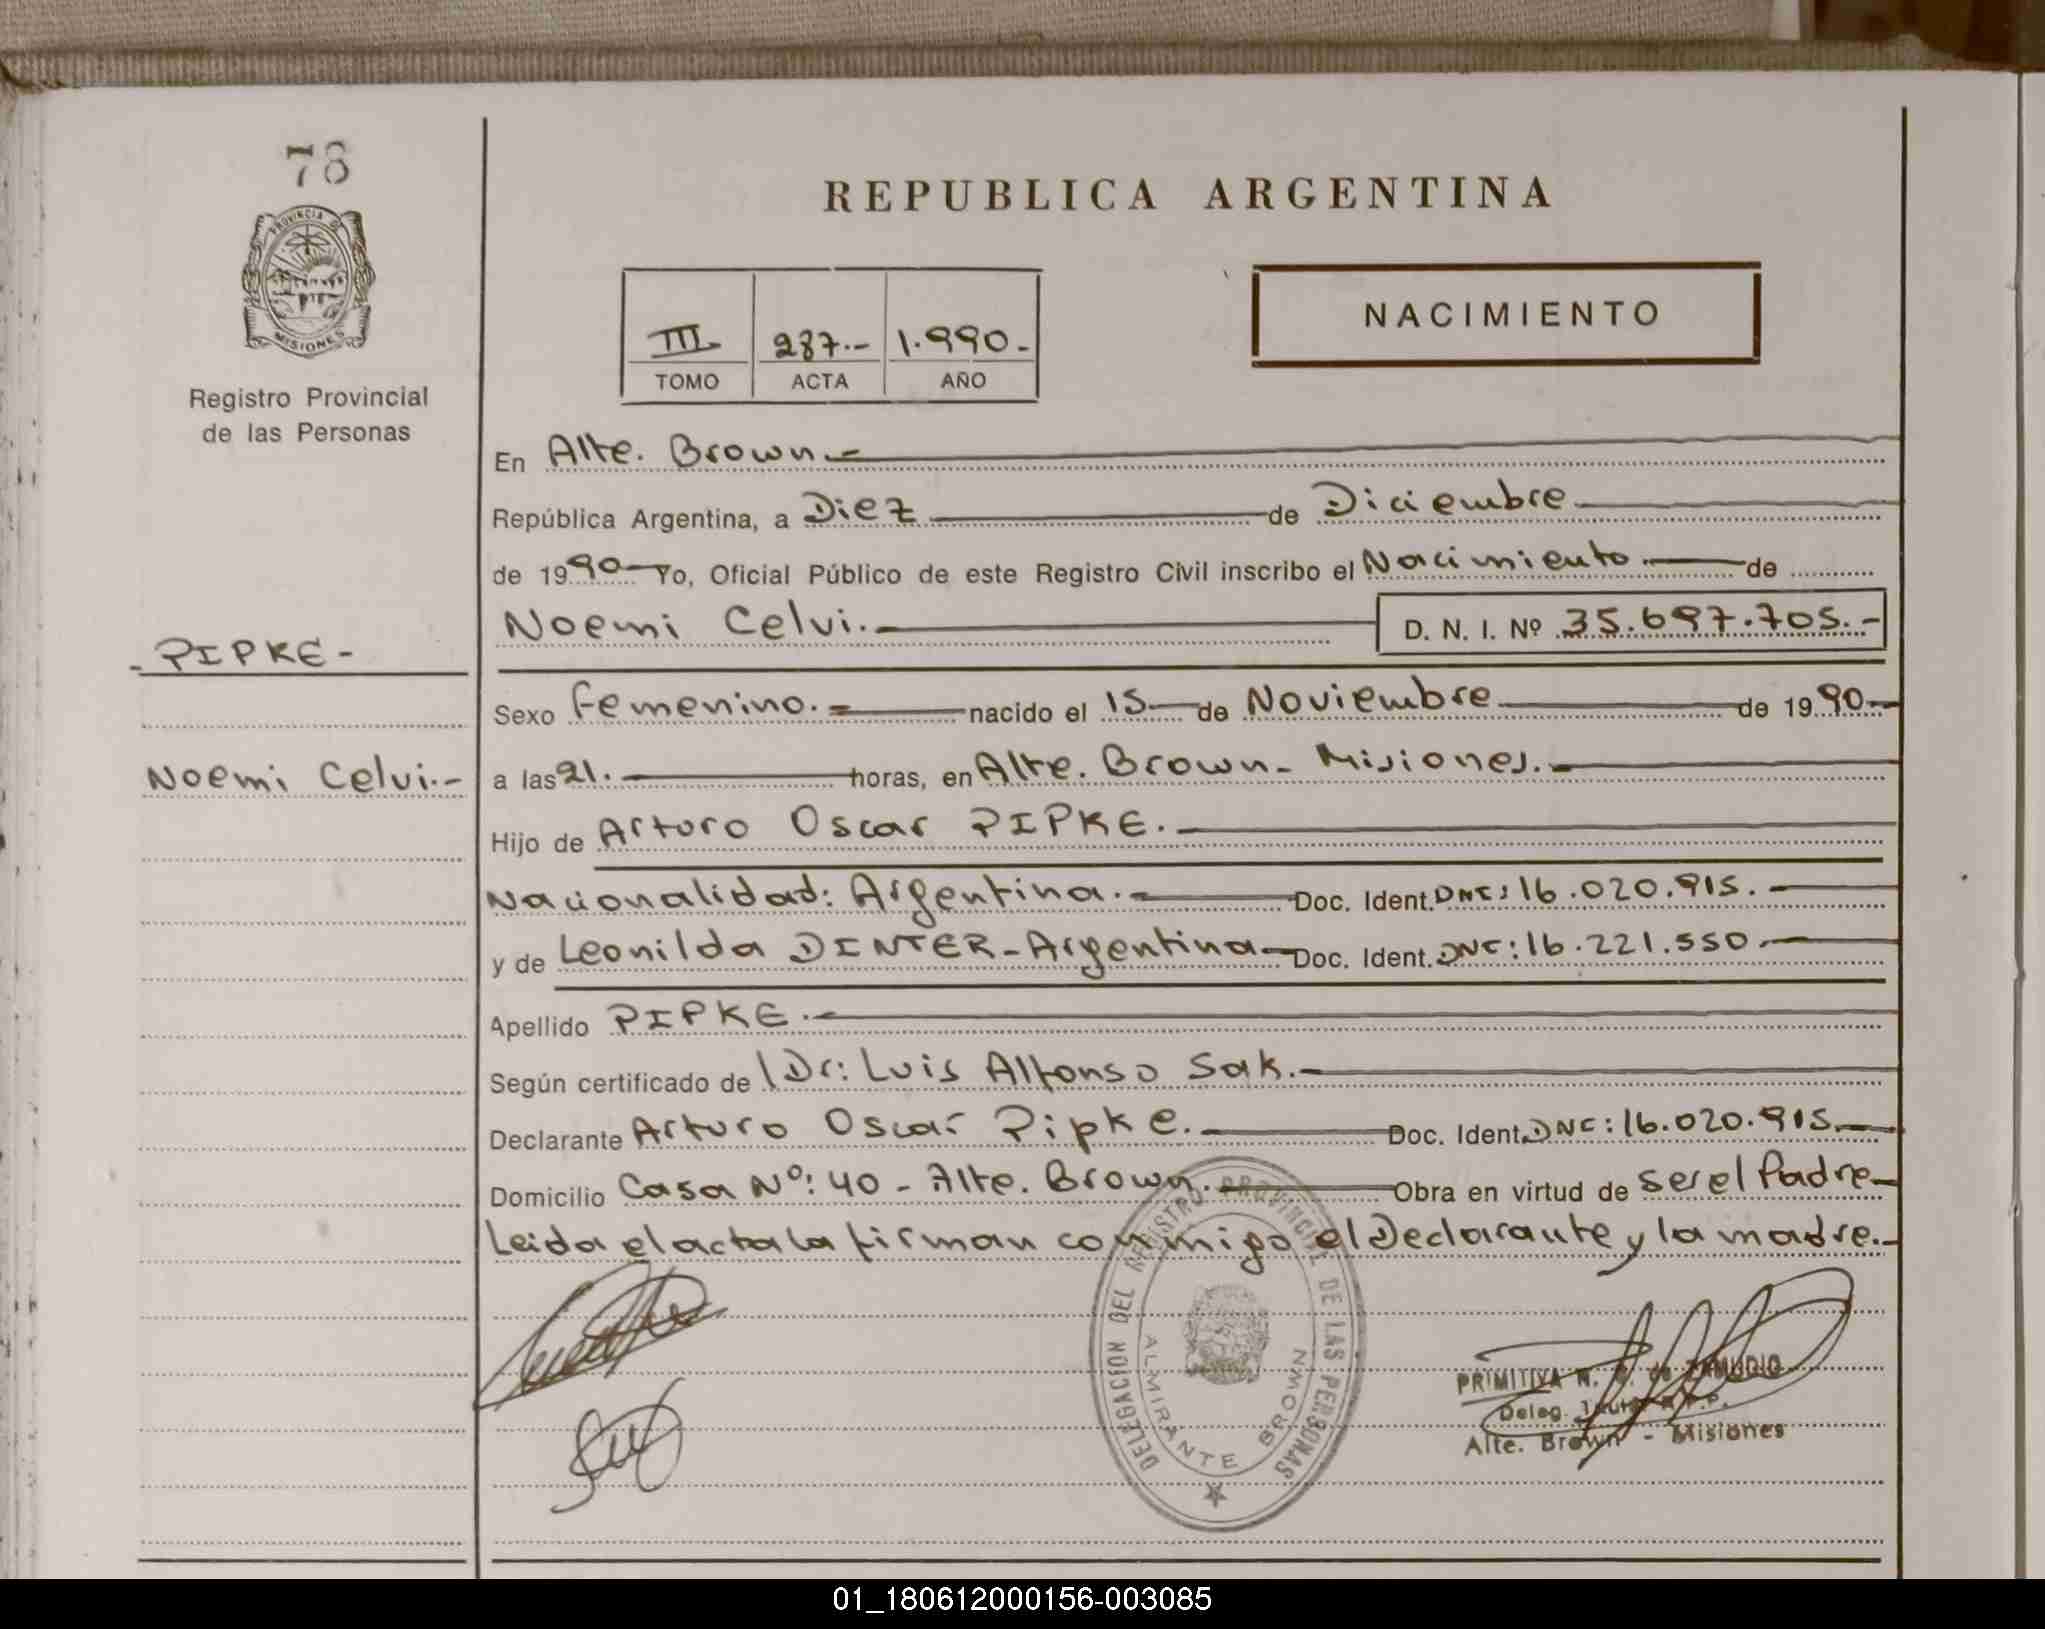 78
PROVINCIA DE
MISIONES
Registro Provincial
de las Personas
- PIPKE -
Noemi Celvi.-
REPUBLICA ARGENTINA
NACIMIENTO
III 287.- 1.990.-
TOMO ACTA AÑO
En Alte. Brown.-
República Argentina, a Diez de Diciembre
de 1990 Yo, Oficial Público de este Registro Civil inscribo el Nacimiento de
Noemi Celvi.- D. N. I. Nº 35.697.705.-
Sexo Femenino.= nacido el 15 de Noviembre de 1990-
a las 21. horas, en Alte. Brown - Misiones.-
Hijo de Arturo Oscar PIPKE.-
Nacionalidad: Argentina.- Doc. Ident. DNI: 16.020.915.-
y de Leonilda DINTER - Argentina - Doc. Ident. DNI: 16.221.550.-
Apellido PIPKE.-
Según certificado de Dr: Luis Alfonso Sak.-
Declarante Arturo Oscar Pipke.- Doc. Ident. DNI: 16.020.915.-
Domicilio Casa Nº: 40 - Alte. Brown.- Obra en virtud de ser el Padre-
Leida el acta la firman conmigo el Declarante y la madre.-
DELEGACION DEL REGISTRO PROVINCIAL DE LAS PERSONAS
ALMIRANTE BROWN
PRIMITIVA N. de ZAMUDIO
Deleg. Titular R.P.P.
Alte. Brown - Misiones
01_180612000156-003085